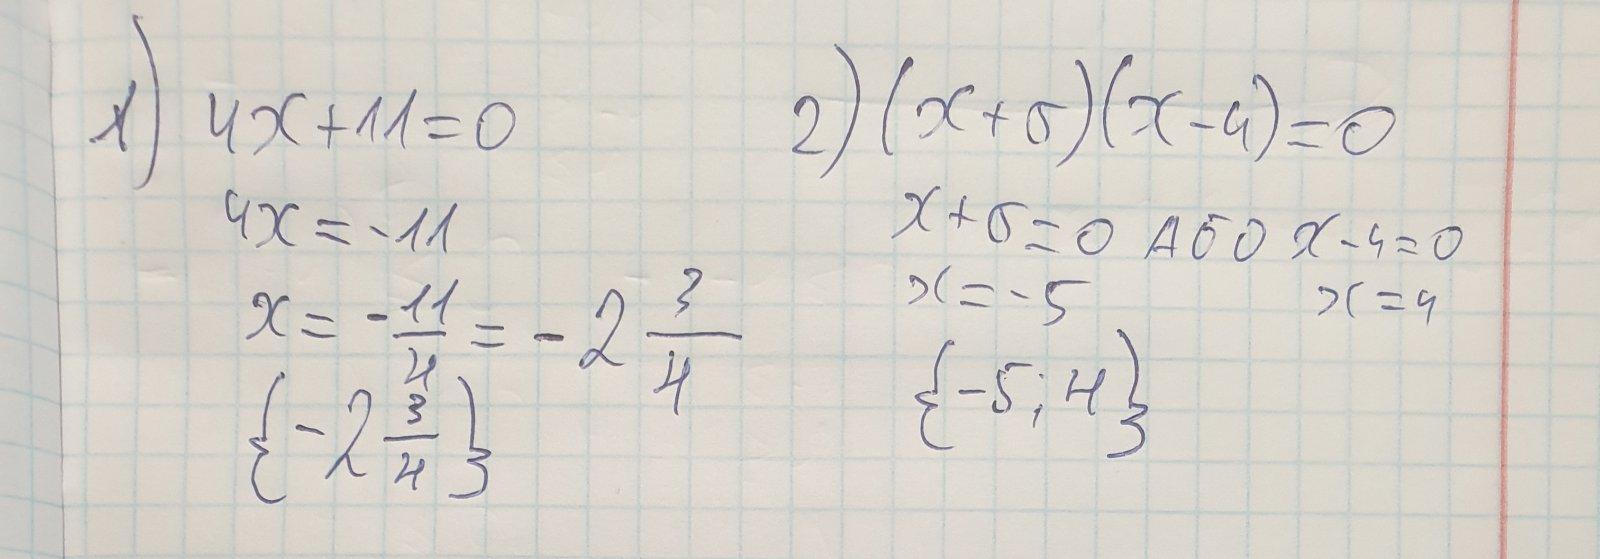 1) 4x+11=0
4x=-11
x=-11/4=-2 3/4
{-2 3/4}
2) (x+5)(x-4)=0
x+5=0 АБО x-4=0
x=-5 x=4
{-5; 4}